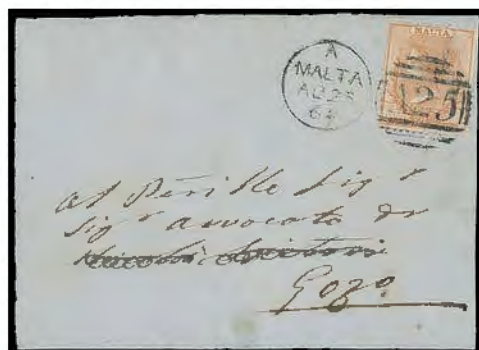 MALTA
A
MALTA
A25
Al Perille Sigr
Sigr avvocato Dr
Gozo